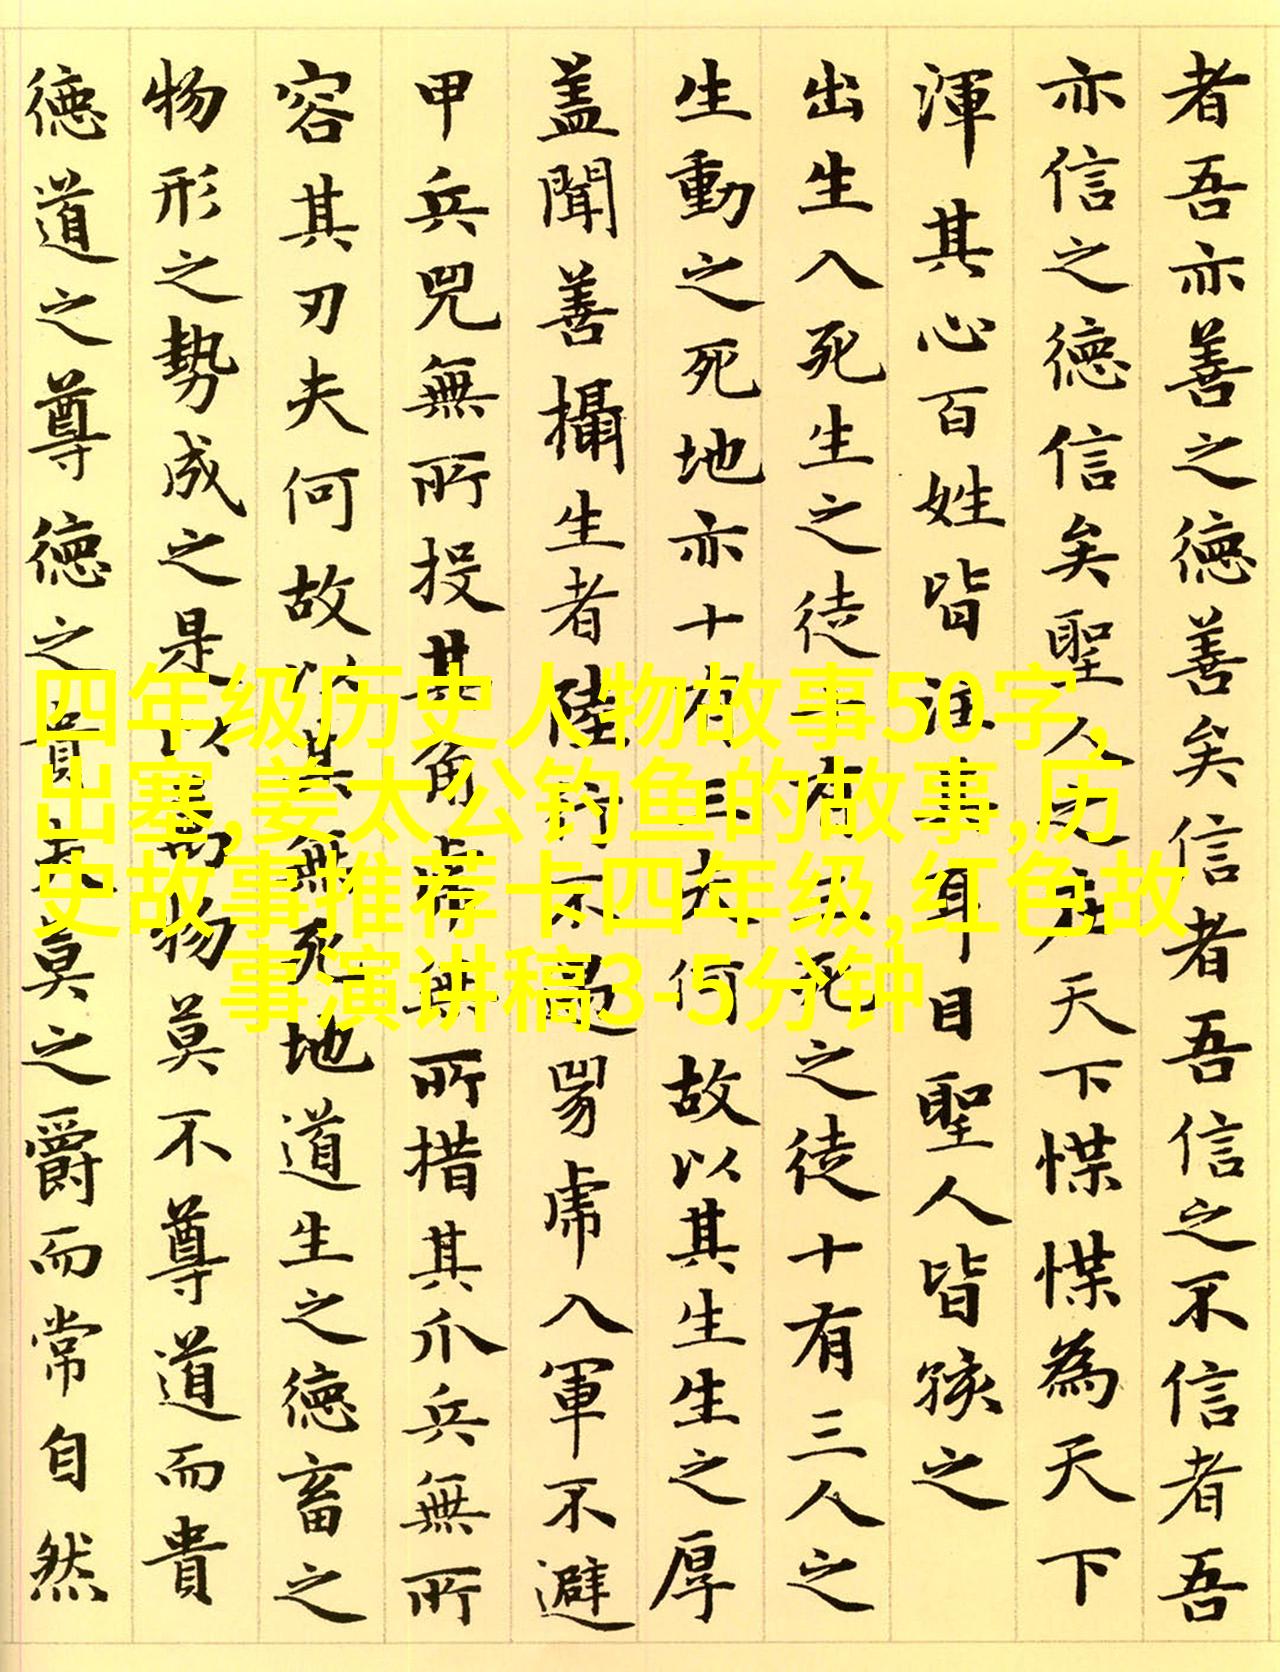 者吾亦善之德善矣信者吾信之不信者吾
亦信之德信矣聖人之在天下惵惵為天下
渾其心百姓皆注其耳目聖人皆孩之
出生入死生之徒十有三死之徒十有三人之
生動之死地亦十有三夫何故以其生生之厚
盖聞善攝生者陸行不遇兕虎入軍不避
甲兵兕無所投其角虎無所措其爪兵無所
容其刃夫何故以其無死地道生之德畜之
物形之勢成之是以萬物莫不尊道而貴
德道之尊德之貴夫莫之爵而常自然
四年级历史人物故事50字,
出塞,姜太公钓鱼的故事,历
史故事推荐卡四年级,红色故
事演讲稿3-5分钟